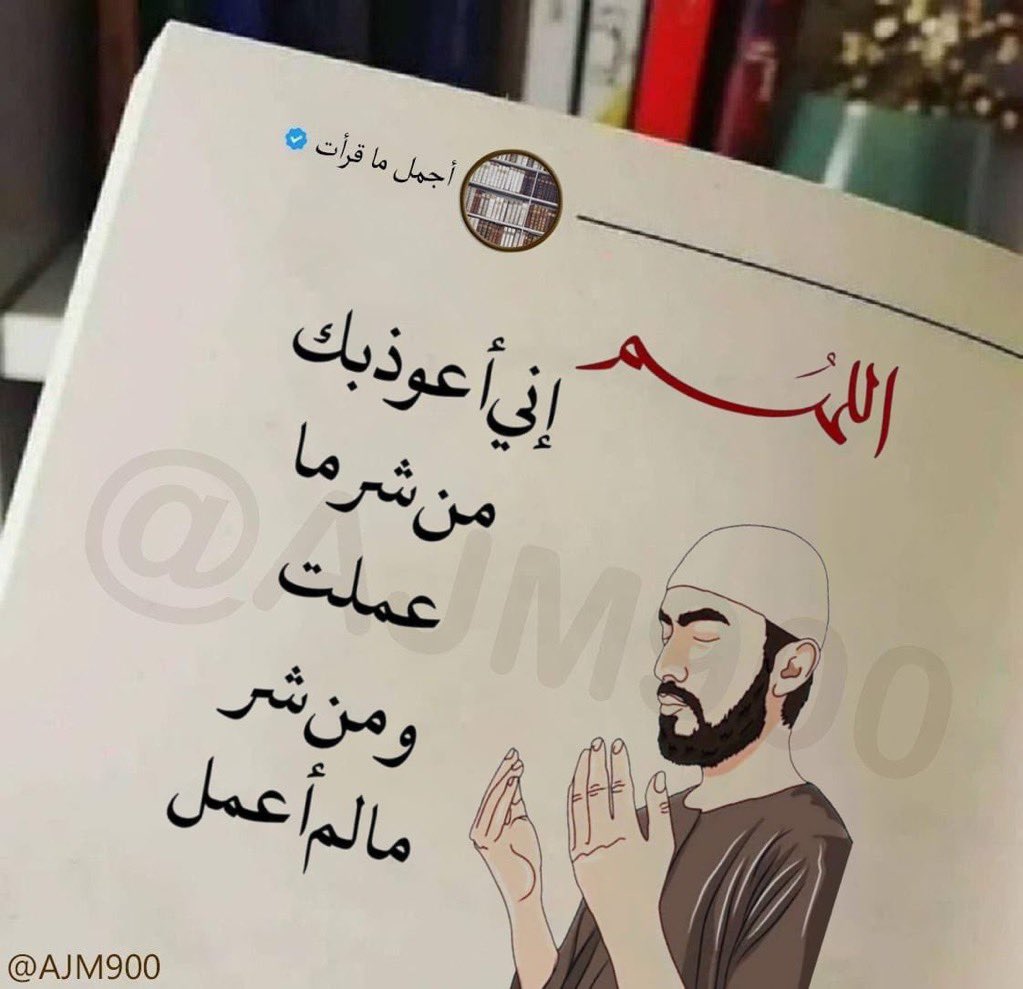 أجمل ما قرأت
اللهُم إني أعوذ بك
من شر ما
عملت
ومن شر
ما لم أعمل
@AJM900
@AJM900